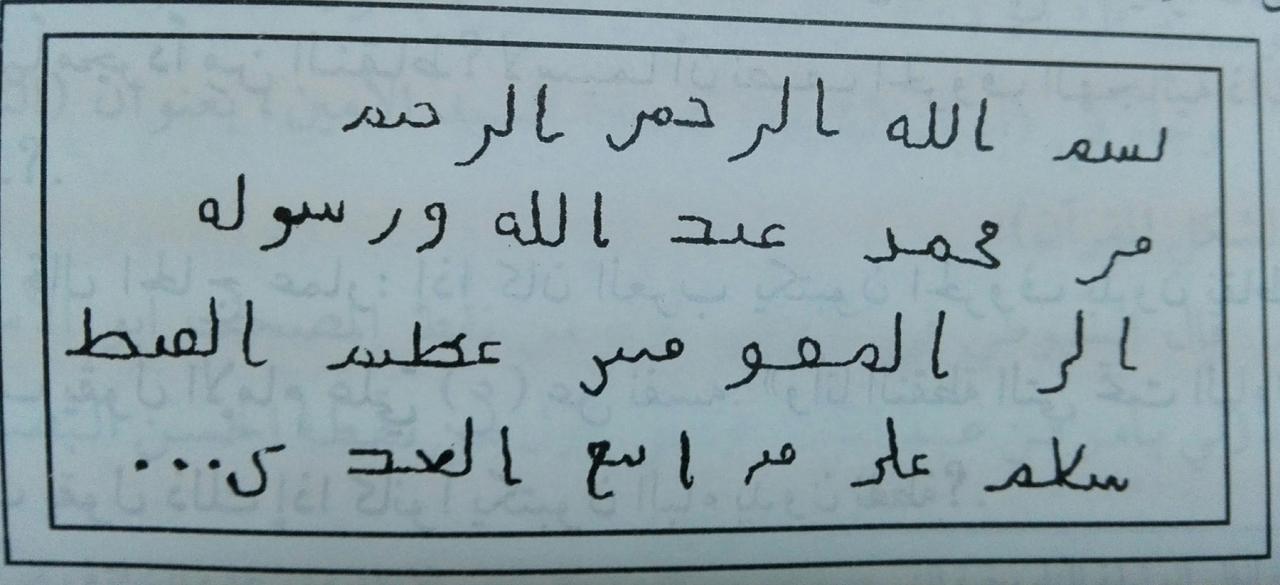 بسم الله الرحمن الرحيم
من محمد عبد الله ورسوله
الى المقوقس عظيم القبط
سلام على من اتبع الهدى...